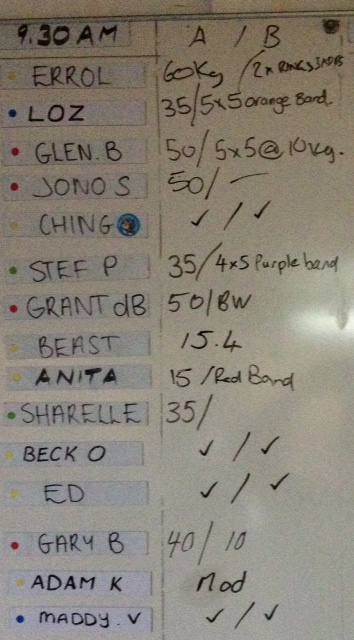 9.30 AM A / B
ERROL 60Kg / 2x RINGS
LOZ 35/5x5 orange Band.
GLEN.B 50/ 5x5@10kg.
JONO S 50/ —
CHING ✓ / ✓
STEF P 35/4x5 Purple band
GRANT dB 50/BW
BEAST 15.4
ANITA 15 /Red Band
SHARELLE 35/
BECK O ✓ / ✓
ED ✓ / ✓
GARY B 40/ 10
ADAM K Mod
MADDY.V ✓ / ✓